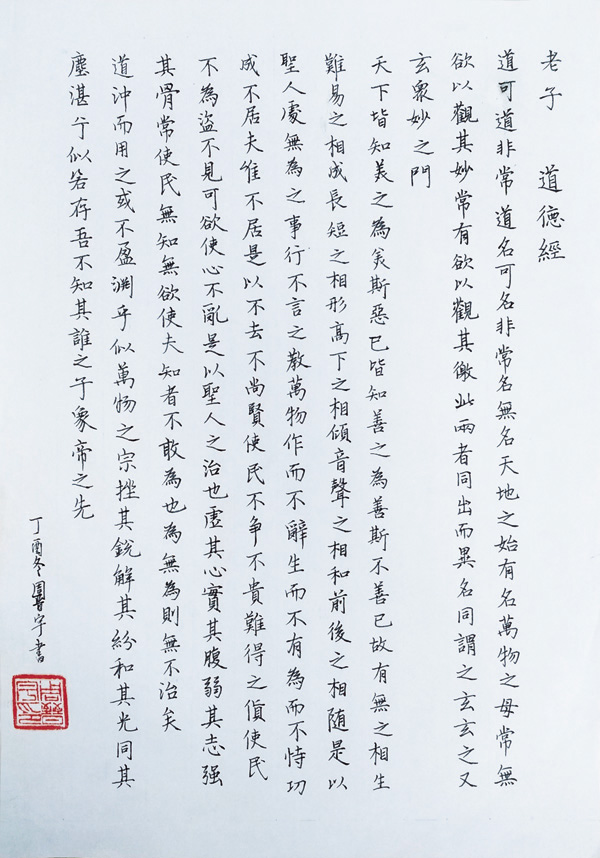 老子 道德經
道可道非常道名可名非常名無名天地之始有名萬物之母常無
欲以觀其妙常有欲以觀其徼此兩者同出而異名同謂之玄玄之又
玄衆妙之門
天下皆知美之為美斯惡已皆知善之為善斯不善已故有無之相生
難易之相成長短之相形高下之相傾音聲之相和前後之相随是以
聖人處無為之事行不言之教萬物作而不辭生而不有為而不恃功
成不居夫唯不居是以不去不尚賢使民不爭不貴難得之貨使民
不為盜不見可欲使心不亂是以聖人之治也虛其心實其腹弱其志强
其骨常使民無知無欲使夫知者不敢為也為無為則無不治矣
道沖而用之或不盈渊乎似萬物之宗挫其銳解其紛和其光同其
塵湛兮似若存吾不知其誰之子象帝之先
丁酉冬周普宇書